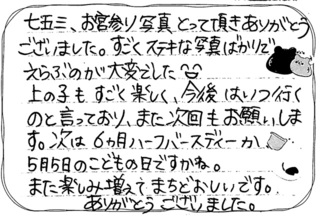 七五三、お宮参り写真とって頂きありがとう
ございました。すごくステキな写真ばかりで
えらぶのが大変でした
上の子もすごく楽しく、今後はいつ行く
のと言っており、また次回もお願いしま
す。次は6ヵ月ハーフバースディーか、
5月5日のこどもの日ですかね。
また楽しみ増えてまちどおしいです。
ありがとうございました。